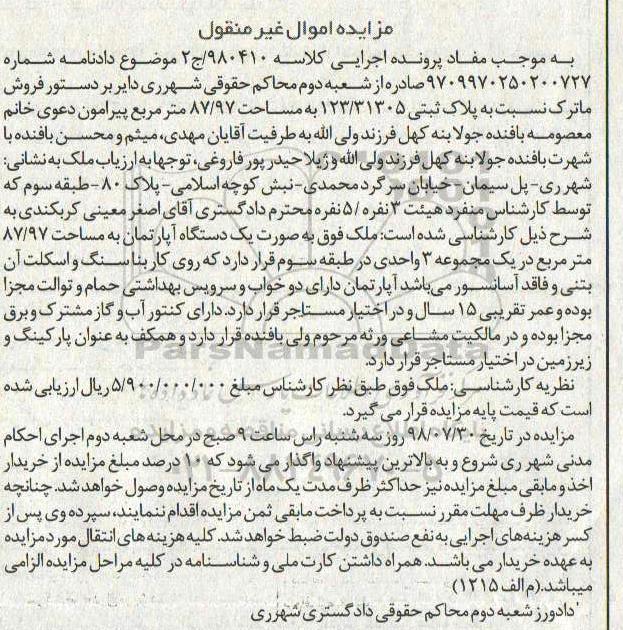 مزایده اموال غیر منقول
به موجب مفاد پرونده اجرایی کلاسه ۹۸۰۴۱۰/ج۲ موضوع دادنامه شماره
۹۷۰۹۹۷۰۲۵۰۲۰۰۷۲۷ صادره از شعبه دوم محاکم حقوقی شهرری دایر بر دستور فروش
ماترک نسبت به پلاک ثبتی ۱۲۳/۳۱۳۰۵ به مساحت ۸۷/۹۷ متر مربع پیرامون دعوی خانم
معصومه بافنده جولا بنه کهل فرزند ولی الله به طرفیت آقایان مهدی، میثم و محسن بافنده با
شهرت بافنده جولا بنه کهل فرزند ولی الله و ژیلا حیدر پور فاروغی، توجها به ارزیاب ملک به نشانی:
شهر ری- پل سیمان- خیابان سر گرد محمدی- نبش کوچه اسلامی- پلاک ۸۰ - طبقه سوم که
توسط کارشناس منفرد هیئت ۳ نفره / ۵ نفره محترم دادگستری آقای اصغر معینی کربکندی به
شرح ذیل کارشناسی شده است: ملک فوق به صورت یک دستگاه آپارتمان به مساحت ۸۷/۹۷
متر مربع در یک مجموعه ۳ واحدی در طبقه سوم قرار دارد که روی کار بنا سنگ و اسکلت آن
بتنی و فاقد آسانسور می‌باشد آپارتمان دارای دو خواب و سرویس بهداشتی حمام و توالت مجزا
بوده و عمر تقریبی ۱۵ سال و در اختیار مستاجر قرار دارد. دارای کنتور آب و گاز مشترک و برق
مجزا بوده و در مالکیت مشاعی ورثه مرحوم ولی بافنده قرار دارد و همکف به عنوان پارکینگ و
زیرزمین در اختیار مستاجر قرار دارد.
نظریه کارشناسی: ملک فوق طبق نظر کارشناس مبلغ ۵/۹۰۰/۰۰۰/۰۰۰ ریال ارزیابی شده
است که قیمت پایه مزایده قرار می گیرد.
مزایده در تاریخ ۹۸/۰۷/۳۰ روز سه شنبه راس ساعت ۹ صبح در محل شعبه دوم اجرای احکام
مدنی شهر ری شروع و به بالاترین پیشنهاد واگذار می شود که ۱۰ درصد مبلغ مزایده از خریدار
اخذ و مابقی مبلغ مزایده نیز حداکثر ظرف مدت یک ماه از تاریخ مزایده وصول خواهد شد. چنانچه
خریدار ظرف مهلت مقرر نسبت به پرداخت مابقی ثمن مزایده اقدام ننمایند، سپرده وی پس از
کسر هزینه‌های اجرایی به نفع صندوق دولت ضبط خواهد شد. کلیه هزینه های انتقال مورد مزایده
به عهده خریدار می باشد. همراه داشتن کارت ملی و شناسنامه در کلیه مراحل مزایده الزامی
میباشد.(م الف ۱۲۱۵)
دادورز شعبه دوم محاکم حقوقی دادگستری شهرری
ParsNamadData